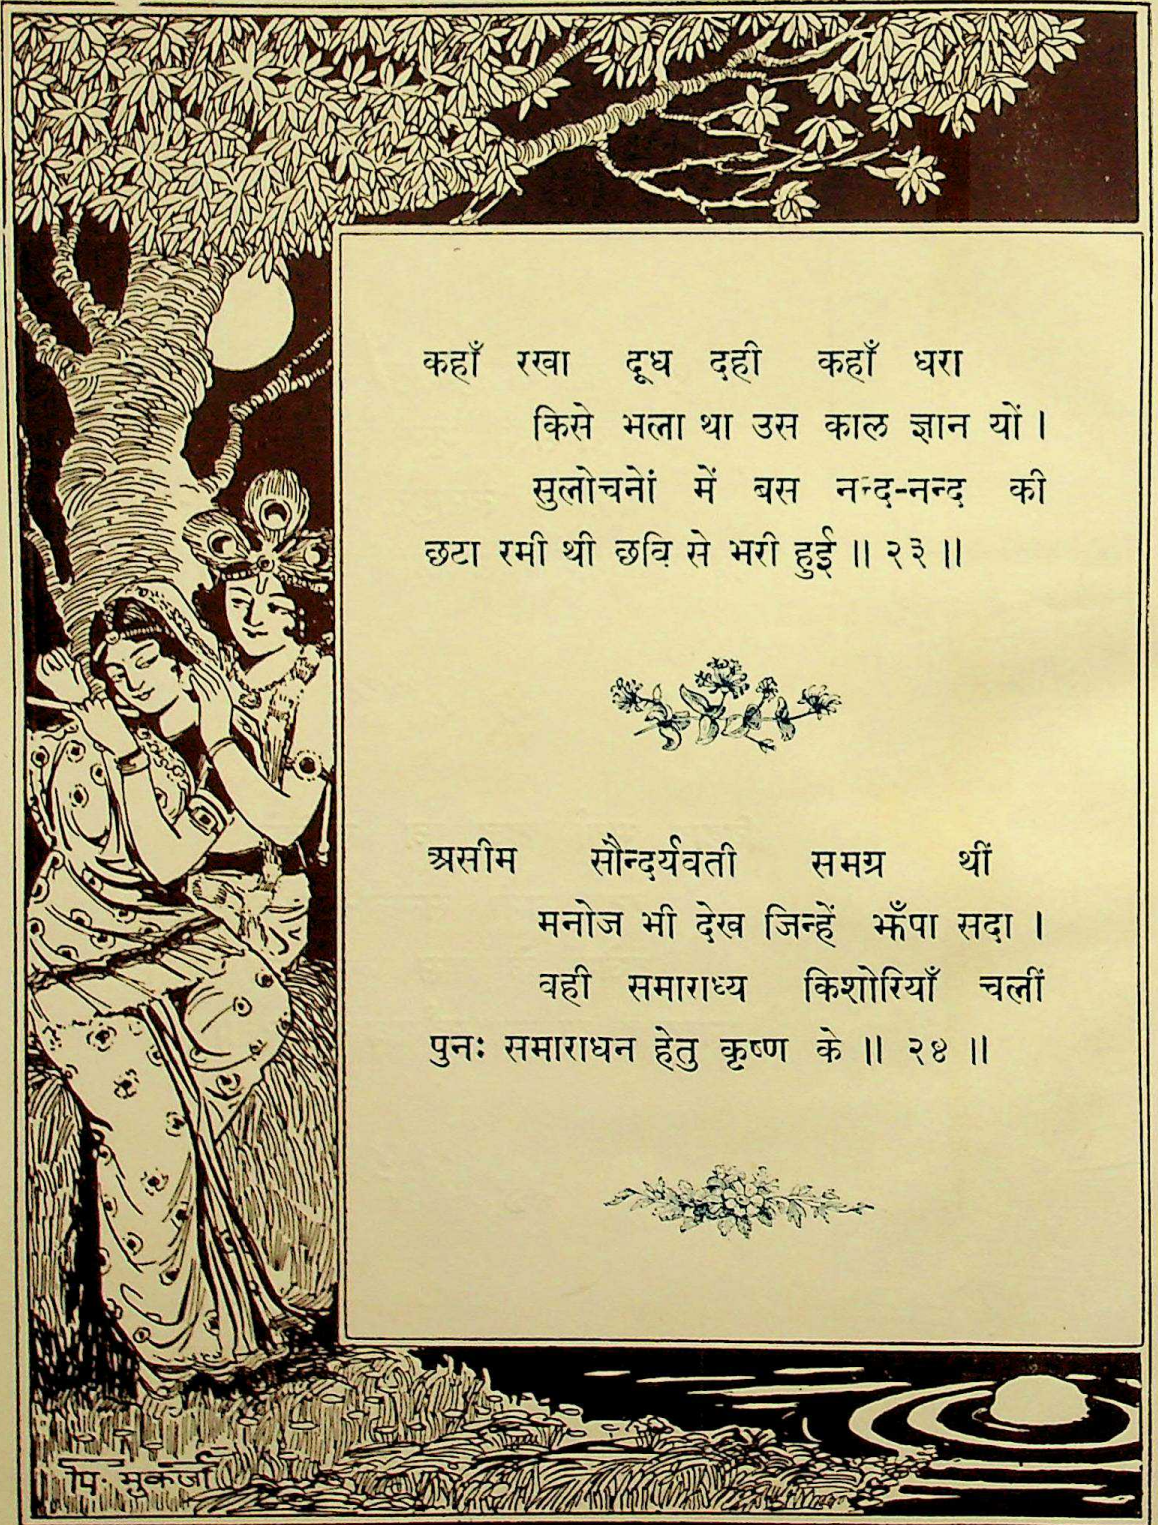 कहाँ रखा दूध दही कहाँ धरा
किसे भला था उस काल ज्ञान यों ।
सुलोचनों में बस नन्द-नन्द की
छटा रमी थी छवि से भरी हुई ॥ २३ ॥
असीम सौन्दर्यवती समग्र थीं
मनोज भी देख जिन्हें झँपा सदा ।
वही समाराध्य किशोरियाँ चलीं
पुनः समाराधन हेतु कृष्ण के ॥ २४ ॥
पि. मुकर्जी